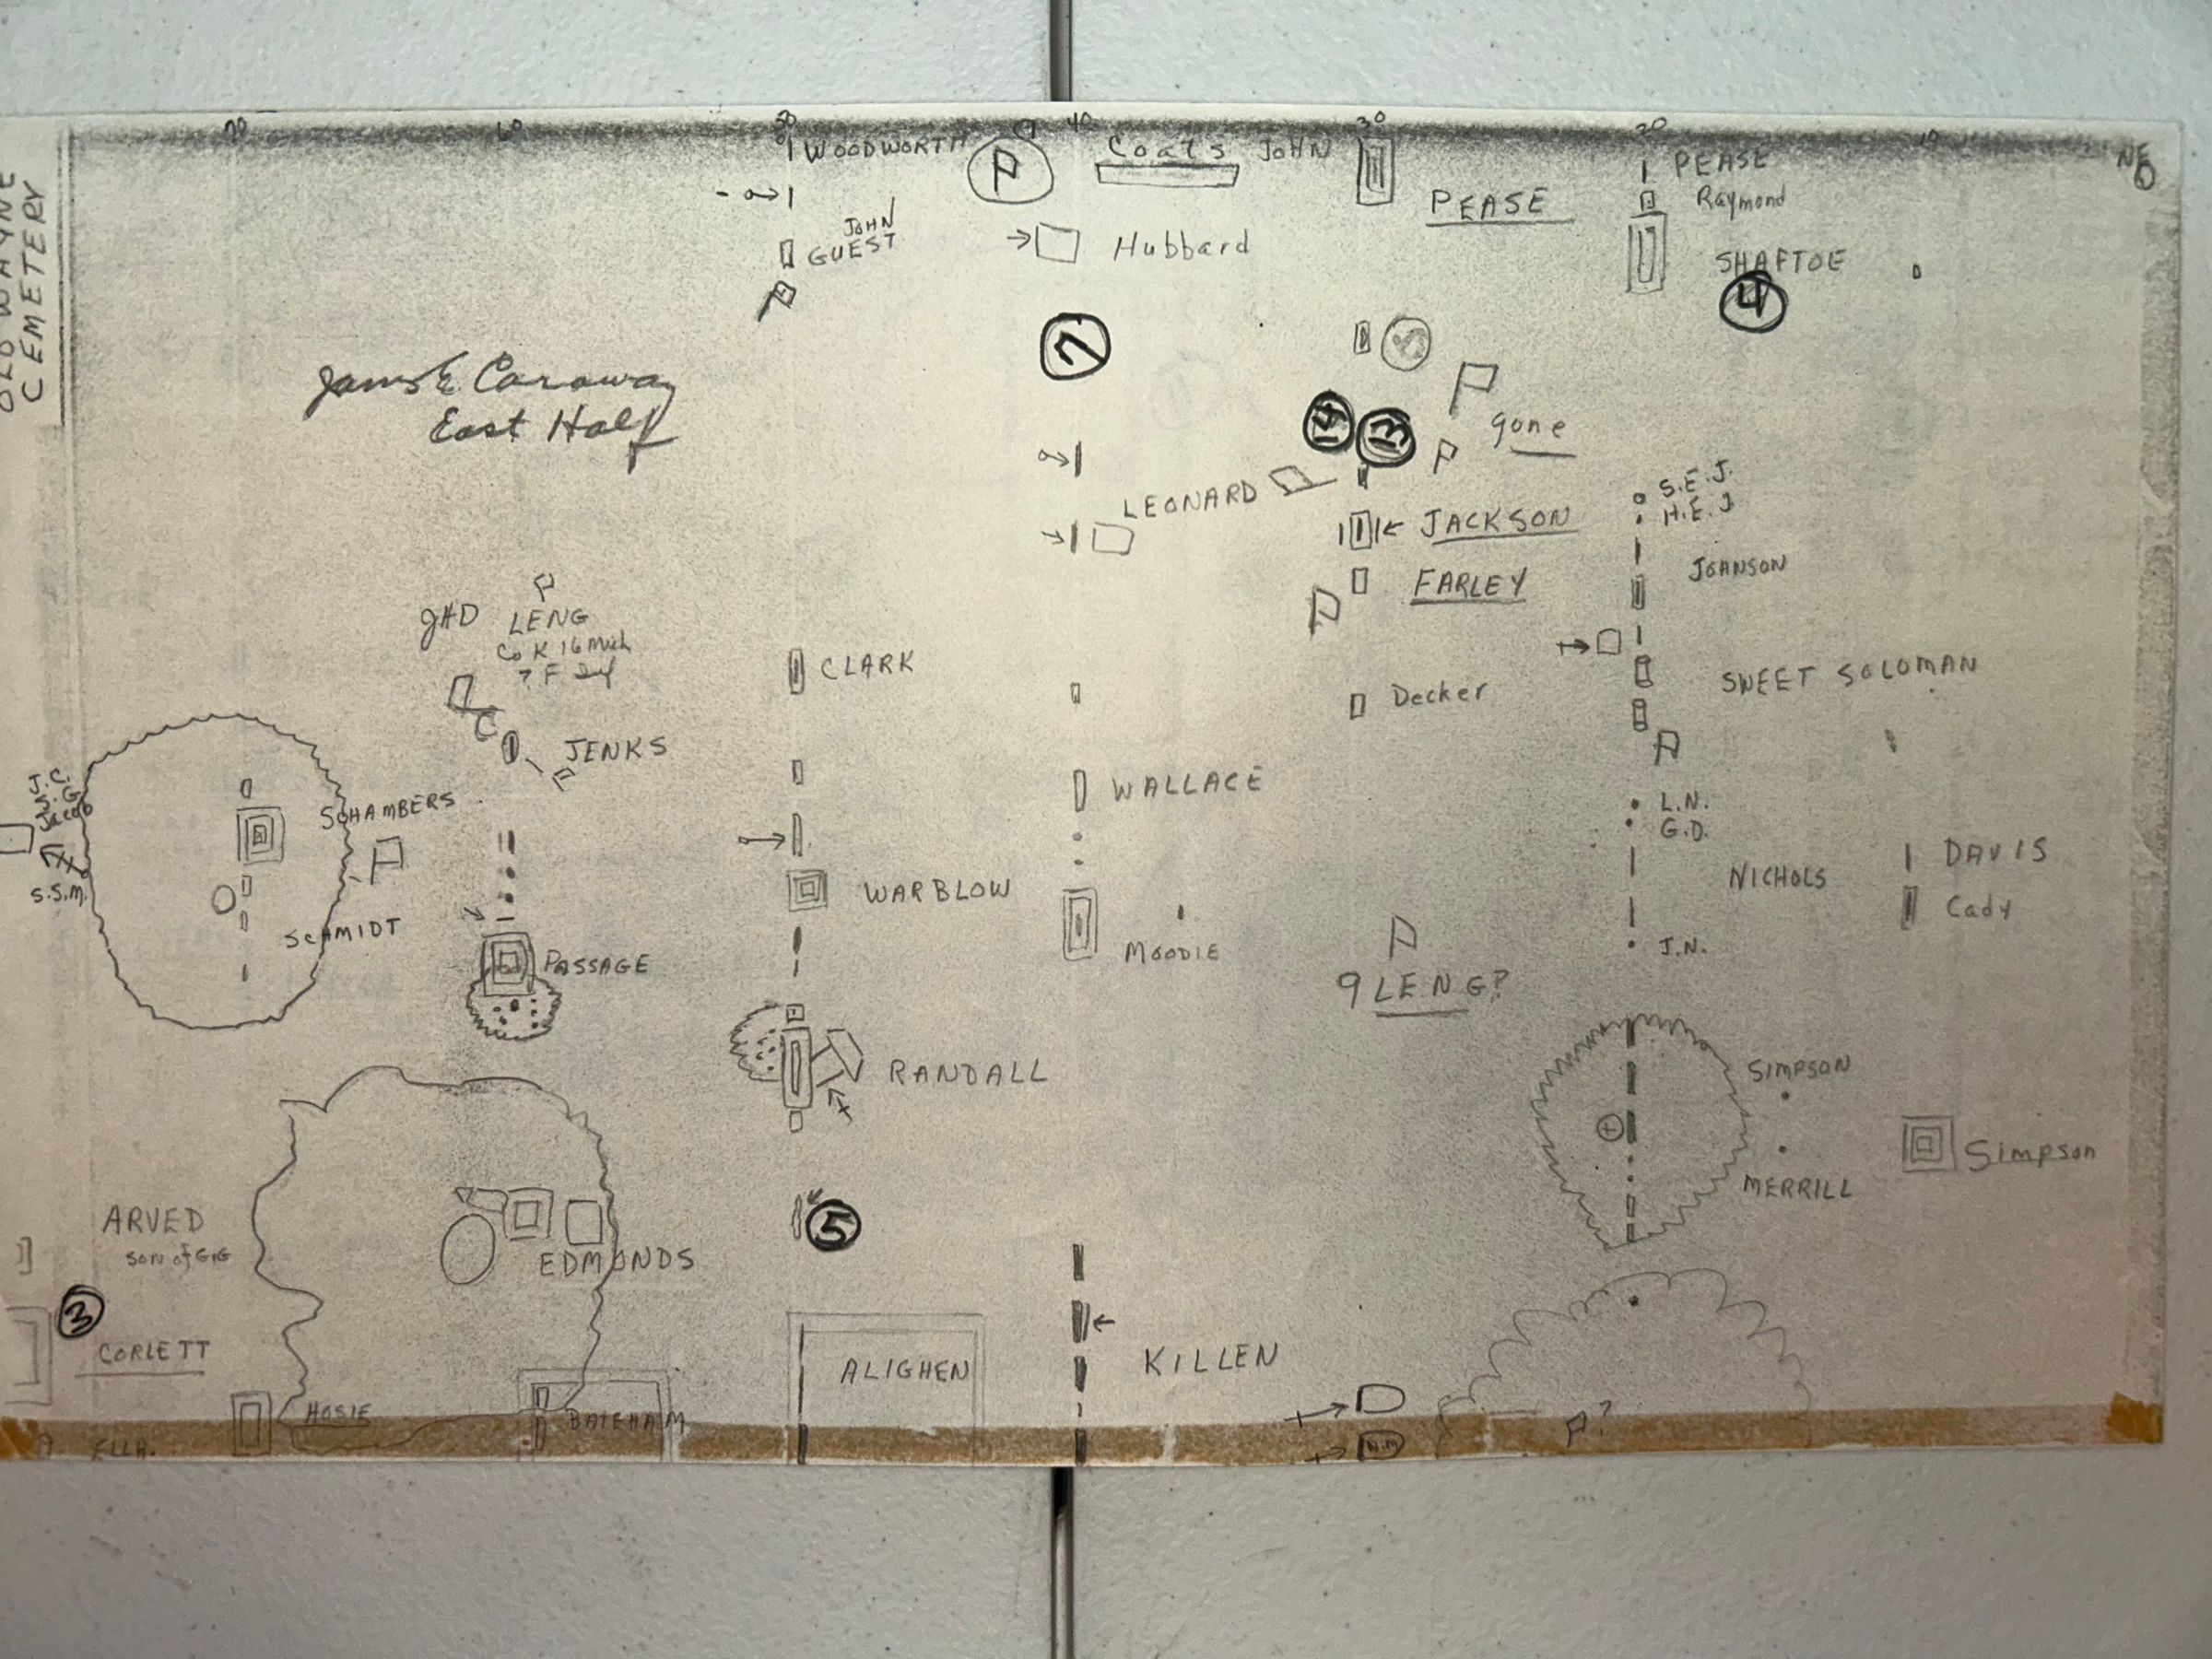 OLD WAYNE
CEMETERY
70
60
50
40
30
20
10
NE
0
WOODWORTH
P
Coats JOHN
PEASE
PEASE
Raymond
JOHN
GUEST
Hubbard
SHAFTOE
4
7
5
James E. Caraway
East Half
14
13
gone
LEONARD
S.E.J.
H.E.J
JACKSON
JOHNSON
FARLEY
JHD
LENG
Co K 16 Mich
CLARK
Decker
SWEET SOLOMAN
JENKS
J.C.
J.G.
Jacob
S.S.M.
SCHAMBERS
WALLACE
L.N.
G.D.
DAVIS
NICHOLS
Cady
WARBLOW
SCHMIDT
MOODIE
J.N.
PASSAGE
9 LENG?
RANDALL
SIMPSON
Simpson
MERRILL
ARVED
son of G+G
EDMONDS
5
3
CORLETT
ALIGHEN
KILLEN
HOSIE
BATEHAM
P?
N.M
ELLA.